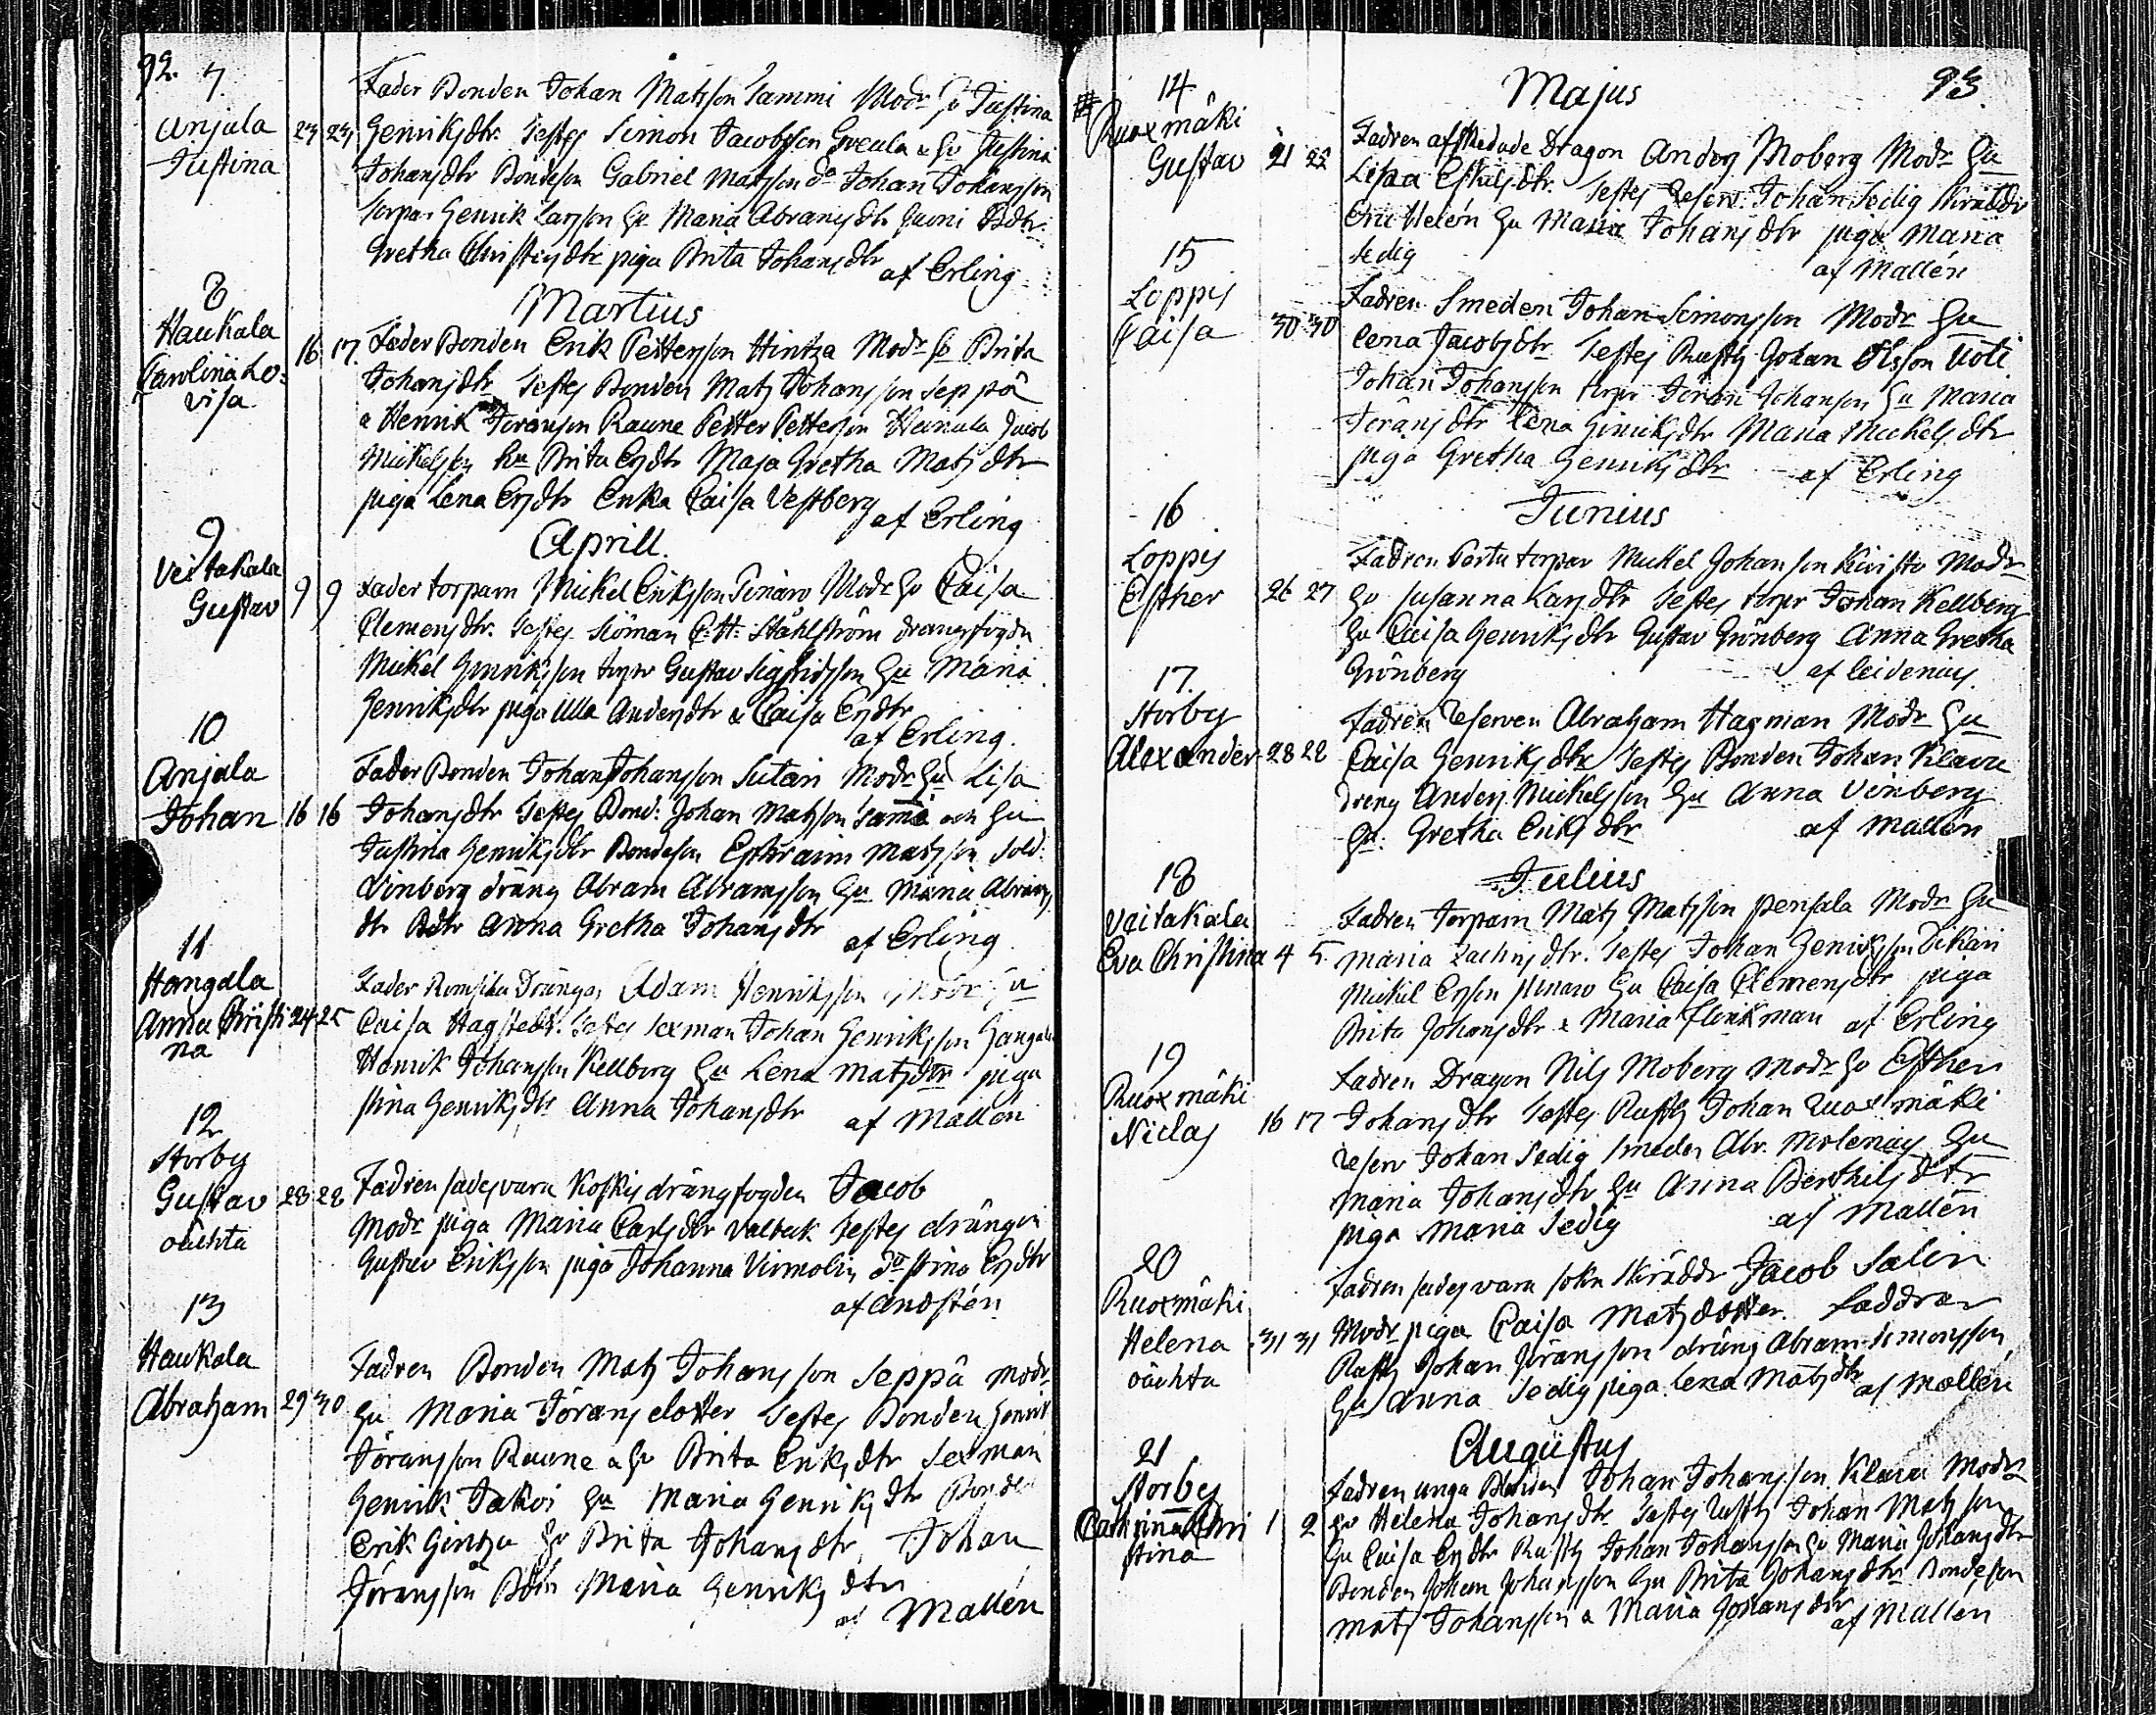 92.
7.
Anjala
Justina
23 23
Fader Bonden Johan Matsson Sammi Modr Hu Justina
Henriksdtr. Testes Simon Jacobsson Greula & Hu Justina
Johansdtr Bondeson Gabriel Matsson do Johan Johansson
torpar Henrik Larsson Hu Maria Abramsdtr
Gretha Christersdtr piga Brita Johansdtr
af Erling
Martius
8
Haukala
Carolina Lo-
visa
16 17
Fader Bonden Erik Pettersson Hintza Modr Hu Brita
Johansdtr Testes Bonden Mats Johansson Seppä
a Henrik Jöransson Raune Petter Pettersson Jacob
Mickelsson hu Brita Ersdtr Maja Gretha Matsdtr
piga Lena Ersdtr Enka Caisa Vestberg
af Erling
Aprill.
9
Veitakala
Gustav
9 9
Fader torparn Mickel Eriksson Modr Hu Caisa
Clemensdtr. Testes C: H: Stählström drängfogdn
Mickel Henriksson torpr Gustav Sigfridsson Hu Maria
Henriksdtr piga Ulla Andersdtr & Caisa Ersdtr
af Erling.
10
Anjala
Johan
16 16
Fader Bonden Johan Johansson Sutari Modr Hu Lisa
Johansdtr Testes Bond: Johan Matsson Sami och Hu
Justina Henriksdtr Bondeson Ephraim Matsson Sold:
Vinberg dräng Abram Abramsson Hu Maria Abrams
dtr Bdtr Anna Gretha Johansdtr
af Erling
11
Hangala
Anna Christi
na
24 25
Fader Adam Henriksson Modr Hu
Caisa Hagstedt. Testes Sexman Johan Henriksson Hangala
Henrik Johansson Kellberg Hu Lena Matsdtr piga
Stina Henriksdtr Anna Johansdtr
af Mallén
12
Storby
Gustav
oächta
28 28
Fadren sades vara Koskis drängfogden Jacob
Modr piga Maria Carlsdtr Valbeck Testes drängen
Gustav Eriksson piga Johanna Virmolin do Stina Ersdtr
af Andstén
13
Haukala
Abraham
29 30
Fadren Bonden Mats Johansson Seppä Modr
Hu Maria Jöransdotter Testes Bonden Henrik
Jöransson Raune a Hu Brita Eriksdtr Sexman
Henrik Jakoi Hu Maria Henriksdtr Bonden
Erik Hintza Hu Brita Johansdtr, Johan
Jöransson Maria Henriksdtr
af Mallén
93.
Majus
14
Ruoxmäki
Gustav
21 22
Fadren afskedade Dragon Anders Moberg Modr Hu
Lisa Eskilsdtr. Testes Reserv. Johan Sedig Skräddr
Eric Helén Hu Maria Johansdtr piga Maria
Sedig
af Mallén
15
Loppis
Caisa
30 30
Fadren Smeden Johan Simonsson Modr Hu
Lena Jacobsdtr Testes Rusth Johan Olsson Uoti
Johan Johansson torpr Jöran Johansson Hu Maria
Jöransdtr Lena Hinriksdtr Maria Mickelsdtr
piga Gretha Henriksdtr
af Erling
Junius
16
Loppis
Esther
26 27
Fadren torpar Mickel Johansson Kivisto Modr
Hu Susanna Larsdtr Testes torpr Johan Kellberg
Hu Caisa Henriksdtr Gustav Grönberg Anna Gretha
Grönberg
af Leidenius.
17.
Storby
Alexander
28 28
Fadren Reserven Abraham Hagman Modr Hu
Caisa Henriksdtr Testes Bonden Johan Klavu
dreng Anders Mickelsson Hu Anna Vinberg
Hu. Gretha Eriksdtr
af Mallén
Julius
18
Veitakala
Eva Christina
4 5
Fadren torparn Mats Matsson Pensala Modr Hu
Maria Zachrisdtr. Testes Johan Henriksson Tikari
Mickel Ersson Hu Caisa Clemensdtr piga
Brita Johansdtr & Maria Flinkman
af Erling
19
Ruoxmäki
Niclas
16 17
Fadren Dragon Nils Moberg Modr Hu Esther
Johansdtr Testes Rusth Johan Ruoxmäki
Reserv Johan Sedig Smeden Abr. Molenius Hu
Maria Johansdtr Hu Anna Berthilsdtr
piga Maria Sedig
af Mallén
20
Ruoxmäki
Helena
oächta
31 31
Fadren sades vara sokn Skräddr Jacob Salin
Modr piga Caisa Matsdotter. Faddrar
Rusth Johan Jöransson dräng Abram Simonsson,
Hu Anna Sedig piga Lena Matsdtr
af Mallén
Augustus
21
Storby
Cathrina Chri
stina
1 2
Fadren unga Bonden Johan Johansson Klavu Modr
Hu Helena Johansdtr Testes Rusth Johan Matsson
Hu Caisa Ersdtr Rusth Johan Johansson Hu Maria Johansdtr
Bonden Johan Johansson Hu Brita Johansdtr Bondeson
Mats Johansson a Maria Johansdtr
af Mallén